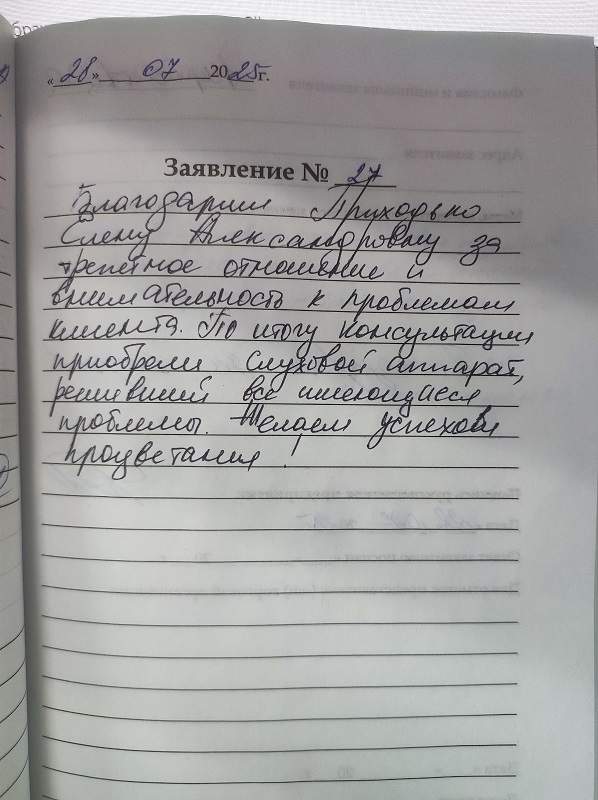 «28» 07 2025г.
Заявление № 27
Благодарим Приходько
Елену Александровну за
трепетное отношение и
внимательность к проблемам
клиента. По итогу консультации
приобрели слуховой аппарат,
решивший все имеющиеся
проблемы. Желаем успехов и
процветания!